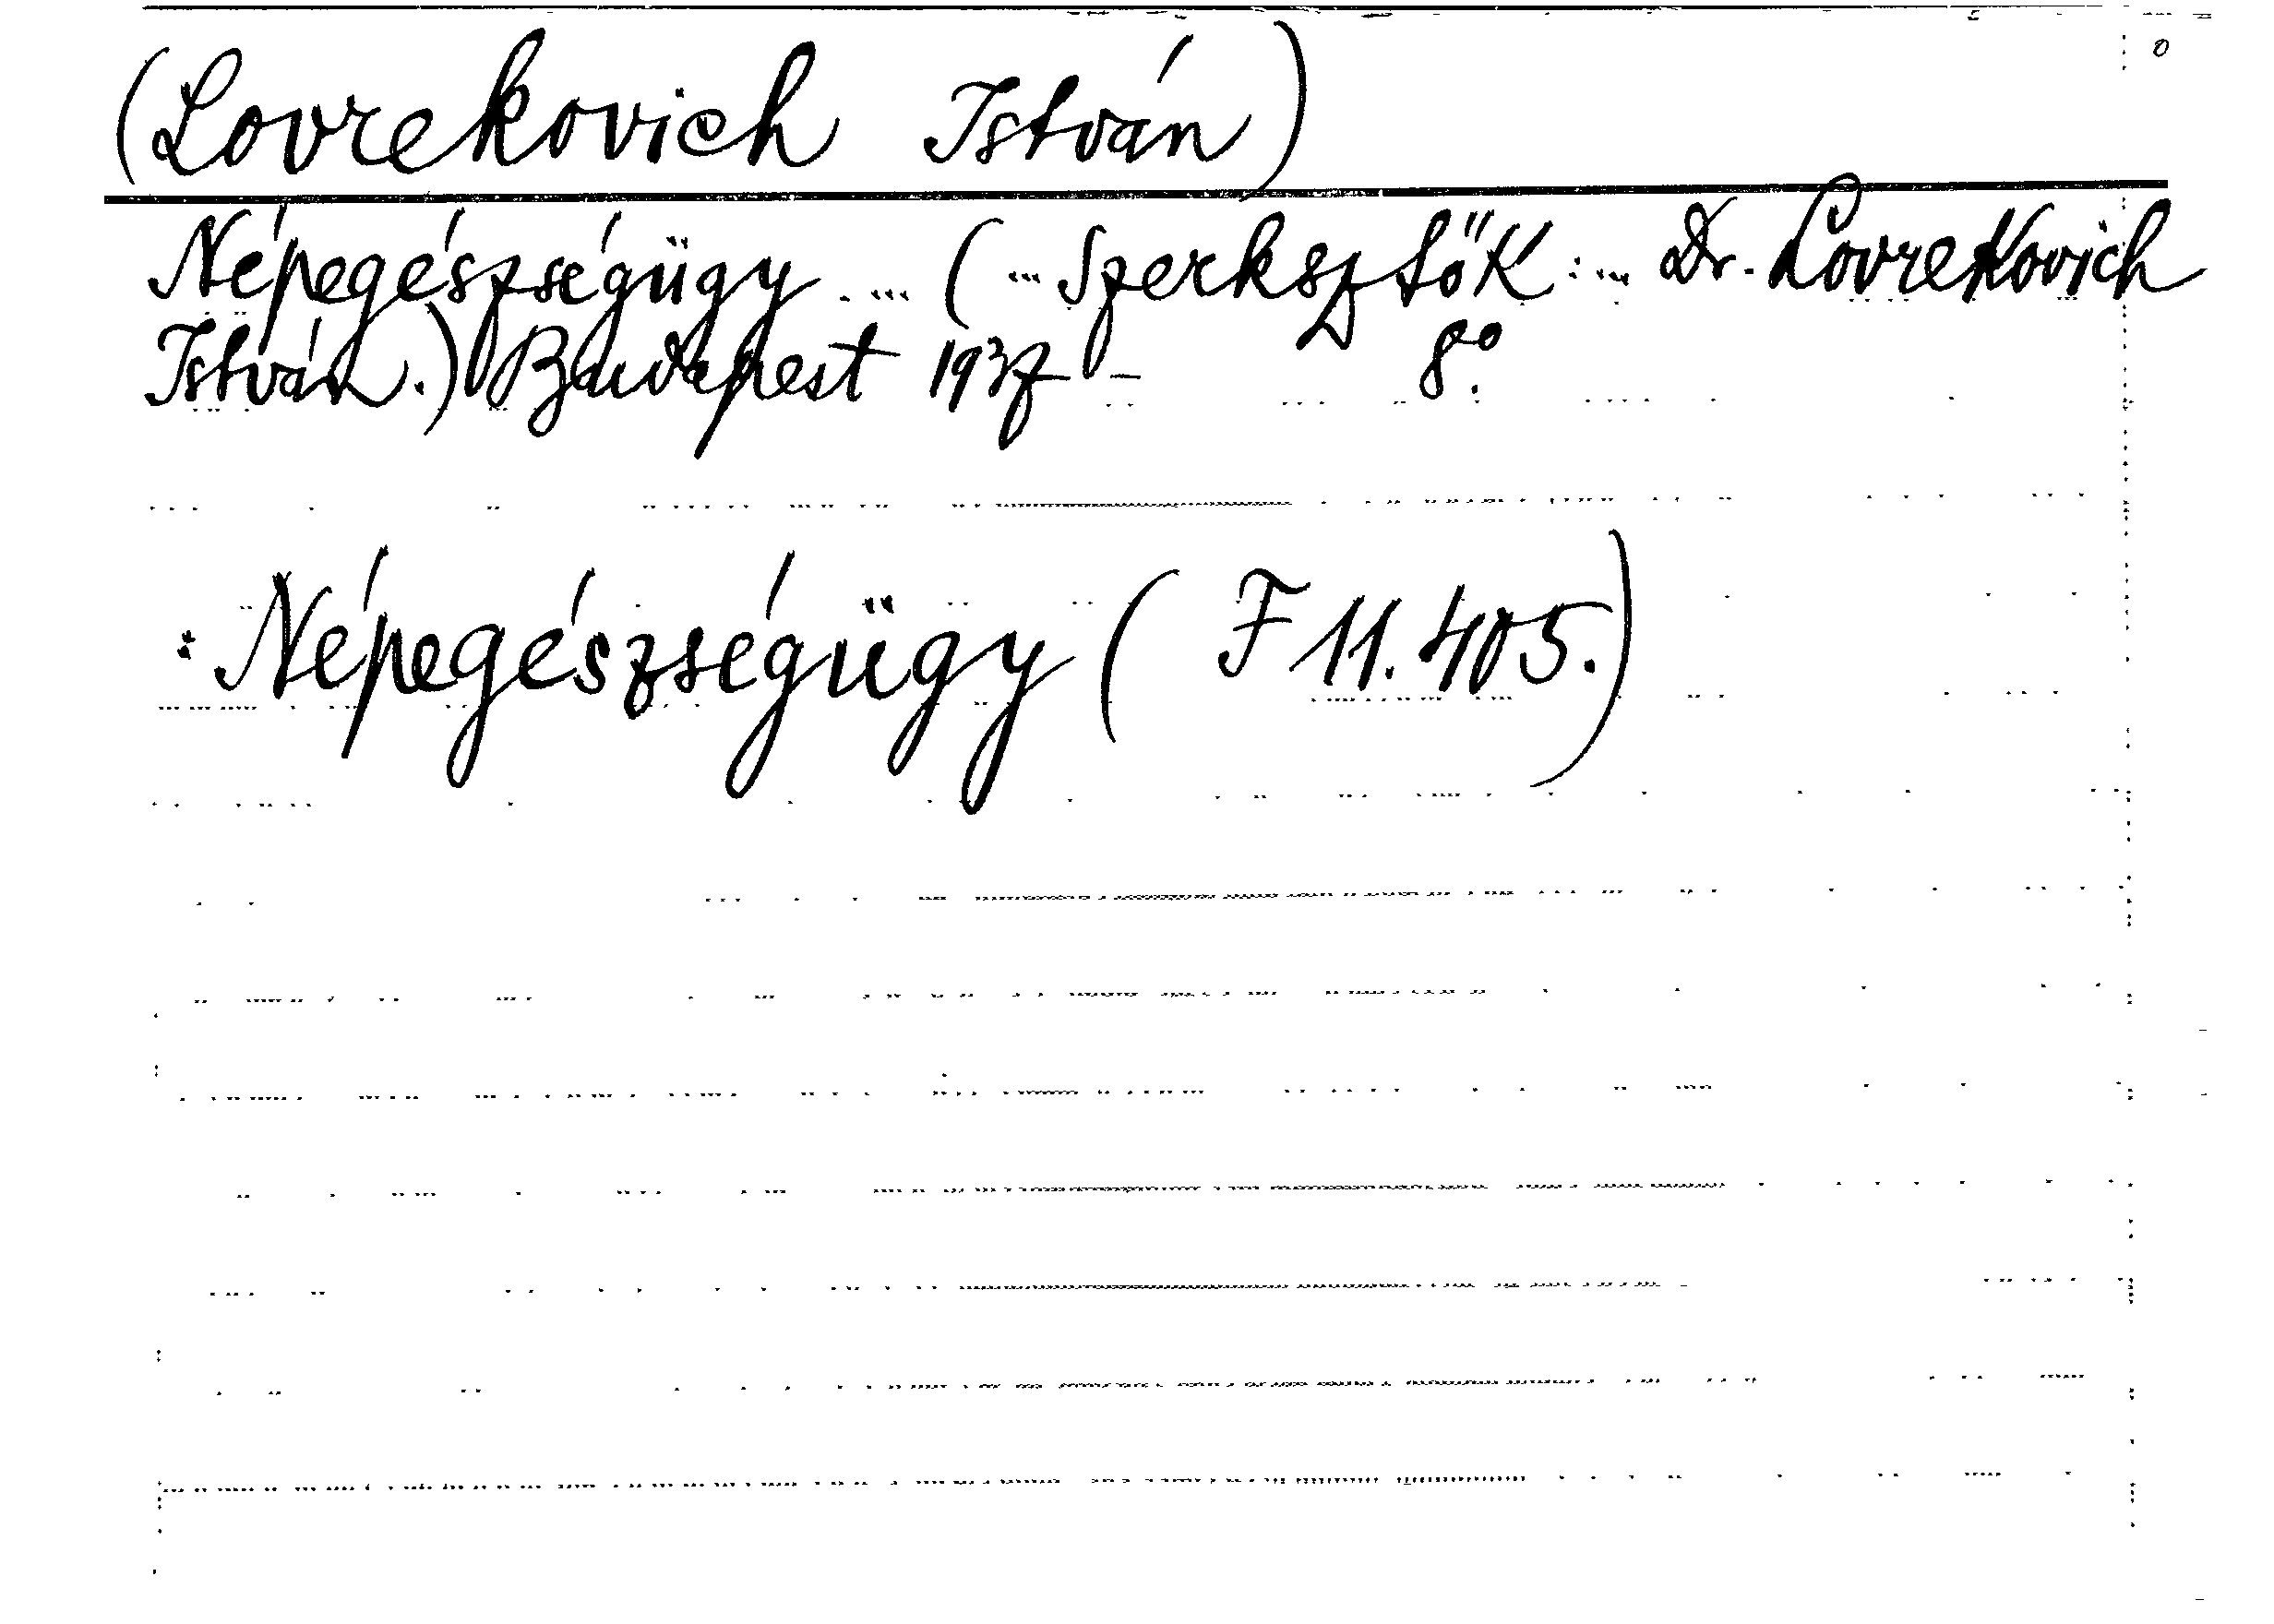 (Lovrekovich István)
Népegészségügy .... (... Szerksztők: ... Dr. Lovrekovich
István.) Budapest 1937 - 8°.
: Népegészségügy ( F 11.405.)